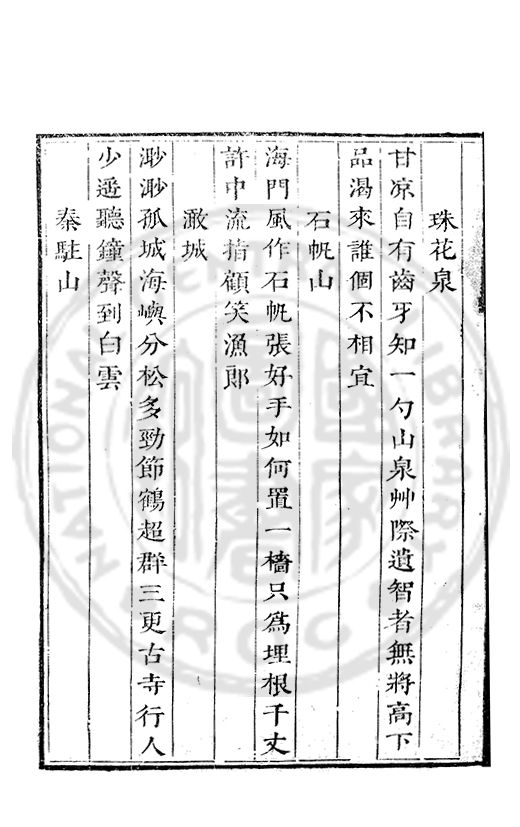 珠花泉
甘凉自有齒牙知一勺山泉艸際遺智者無將高下
品渴來誰個不相宜
石帆山
海門風作石帆張好手如何置一檣只爲埋根千丈
許中流指顧笑漁郎
澉城
渺渺孤城海嶼分松多勁節鶴超群三更古寺行人
少遥聽鐘聲到白雲
秦駐山